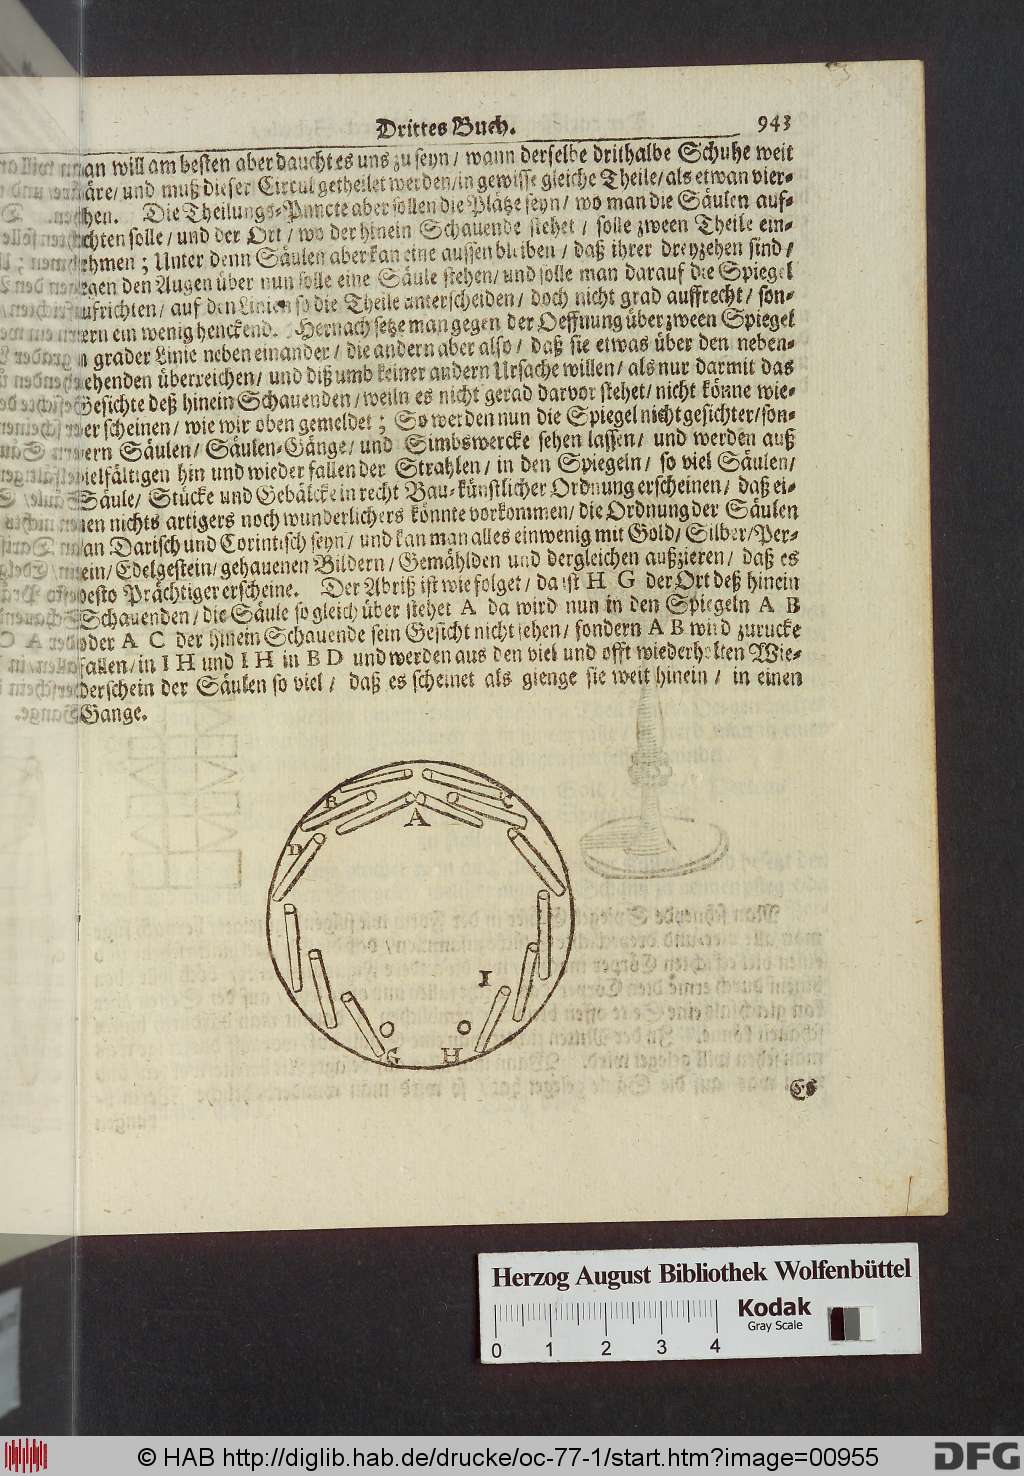 Drittes Buch. 943
man will am besten aber daucht es uns zu seyn / wann derselbe drithalbe Schuhe weit
wäre / und muß dieser Circul getheilet werden / in gewisse gleiche Theile / als etwan vier-
zehen. Die Theilungs-Puncte aber sollen die Plätze seyn / wo man die Säulen auf-
richten solle / und der Ort / wo der hinein Schauende stehet / solle zween Theile ein-
nehmen ; Unter denn Säulen aber kan eine aussen bleiben / daß ihrer dreyzehen sind /
gegen den Augen über nun solle eine Säule stehen / und solle man darauf die Spiegel
aufrichten / auf den Linien so die Theile unterscheiden / doch nicht grad auffrecht / son-
dern ein wenig henckend. Hernach setze man gegen der Oeffnung über zween Spiegel
in grader Linie neben einander / die andern aber also / daß sie etwas über den neben-
stehenden überreichen / und diß umb keiner andern Ursache willen / als nur darmit das
Gesichte deß hinein Schauenden / weiln es nicht gerad darvor stehet / nicht könne wie-
der scheinen / wie wir oben gemeldet ; So werden nun die Spiegel nicht gesichter / son-
dern Säulen / Säulen-Gänge / und Simbswercke sehen lassen / und werden auß
vielfältigen hin und wieder fallen der Strahlen / in den Spiegeln / so viel Säulen /
Säule / Stücke und Gebälcke in recht Bau-künstlicher Ordnung erscheinen / daß ei-
nen nichts artigers noch wunderlichers könnte vorkommen / die Ordnung der Säulen
kan Darisch und Corintisch seyn / und kan man alles ein wenig mit Gold / Silber / Per-
lein / Edelgestein / gehauenen Bildern / Gemählden und dergleichen außzieren / daß es
desto Prächtiger erscheine. Der Abriß ist wie folget / da ist H G der Ort deß hinein
Schauenden / die Säule so gleich über stehet A da wird nun in den Spiegeln A B
oder A C der hinein Schauende sein Gesicht nicht sehen / sondern A B wird zurucke
fallen / in I H und I H in B D und werden aus den viel und offt wiederholten Wie-
derschein der Säulen so viel / daß es scheinet als gienge sie weit hinein / in einen
Gange.
B
C
A
D
I
G H
Es
Herzog August Bibliothek Wolfenbüttel
Kodak
Gray Scale
0 1 2 3 4
© HAB http://diglib.hab.de/drucke/oc-77-1/start.htm?image=00955
DFG